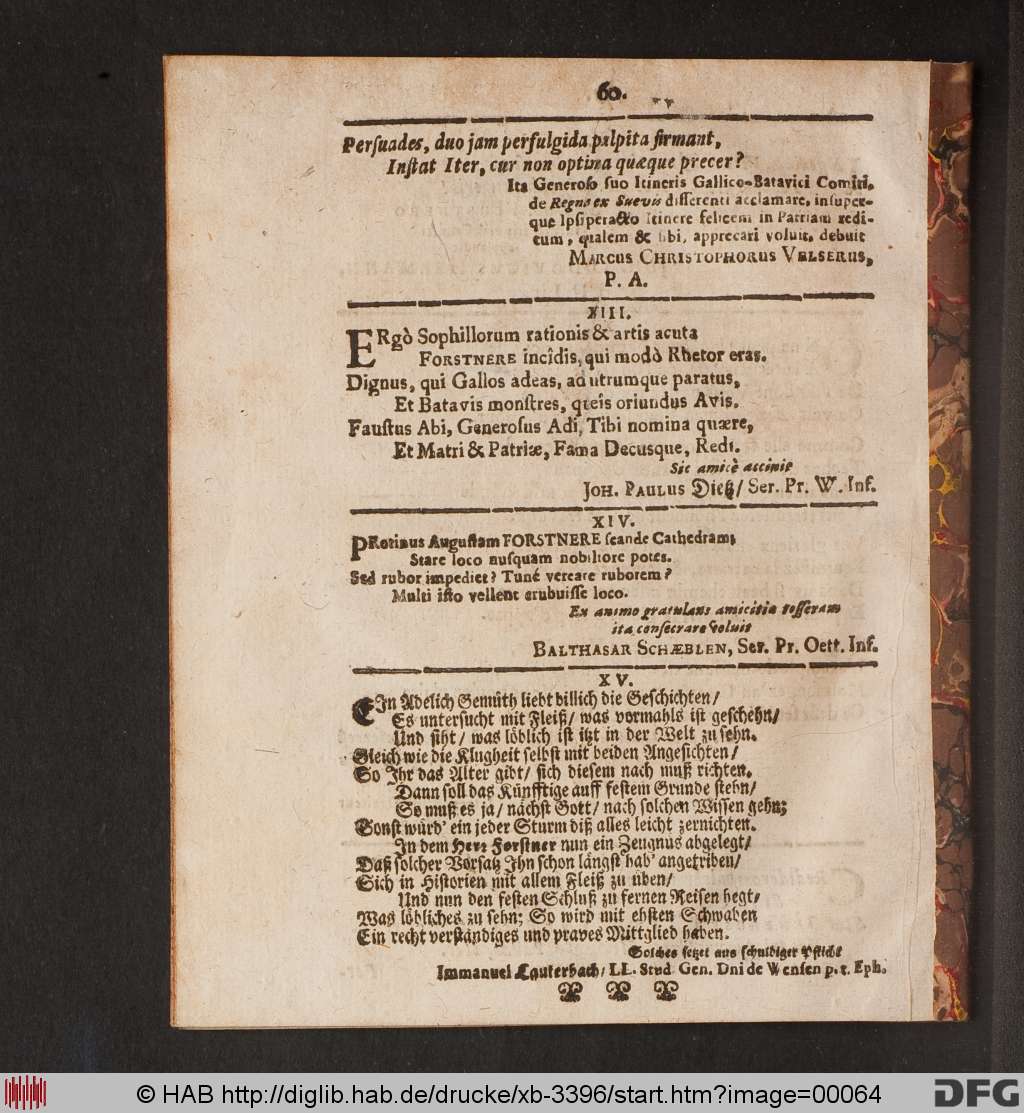 60.
Perſuades, duo jam perfulgida pulpita firmant,
Inſtat Iter, cur non optima quæque precer?
Ita Generoſo ſuo Itineris Gallico-Batavici Comiti,
de Regno ex Suevis diſſerenti acclamare, inſuper-
que Itinere felicem in Patriam redi-
tum, qualem & ſibi, apprecari voluit, debuit
MARCUS CHRISTOPHORUS VELSERUS,
P. A.
XIII.
ERgò Sophillorum rationis & artis acuta
FORSTNERE incîdis, qui modò Rhetor eras.
Dignus, qui Gallos adeas, ad utrumque paratus,
Et Batavis monſtres, queîs oriundus Avis.
Fauſtus Abi, Generoſus Adi, Tibi nomina quære,
Et Matri & Patriæ, Fama Decusque, Redi.
Sic amicè accinit
JOH. PAULUS Dietz/ Ser. Pr. W. Inf.
XIV.
PRotinus Auguſtam FORSTNERE ſcande Cathedram;
Stare loco nuſquam nobiliore potes.
Sed rubor impediet? Tuné vereare ruborem?
Multi iſto vellent erubuiſſe loco.
Ex animo gratulans amicitiæ teſſeram
ita conſecrare voluit
BALTHASAR SCHÆBLEN, Ser. Pr. Oett. Inf.
XV.
EIn Adelich Gemüth liebt billich die Geſchichten/
Es unterſucht mit Fleiß/ was vormahls iſt geſchehn/
Und ſiht/ was löblich iſt itzt in der Welt zu ſehn.
Gleich wie die Klugheit ſelbſt mit beiden Angeſichten/
So Ihr das Alter gibt/ ſich dieſem nach muß richten.
Dann ſoll das Künfftige auff feſtem Grunde ſtehn/
So muß es ja/ nächſt Gott/ nach ſolchen Wiſſen gehn;
Sonſt würd' ein jeder Sturm diß alles leicht zernichten.
In dem Herr Forſtner nun ein Zeugnus abgelegt/
Daß ſolcher Vorſatz Ihn ſchon längſt hab' angetriben/
Sich in Hiſtorien mit allem Fleiß zu üben/
Und nun den feſten Schluß zu fernen Reiſen hegt/
Was löbliches zu ſehn; So wird mit ehſten Schwaben
Ein recht verſtändiges und praves Mittglied haben.
Solches ſetzet aus ſchuldiger Pflicht
Immanuel Lauterbach/ LL. Stud. Gen. Dni de Wenſen p. t. Eph.
© HAB http://diglib.hab.de/drucke/xb-3396/start.htm?image=00064
DFG